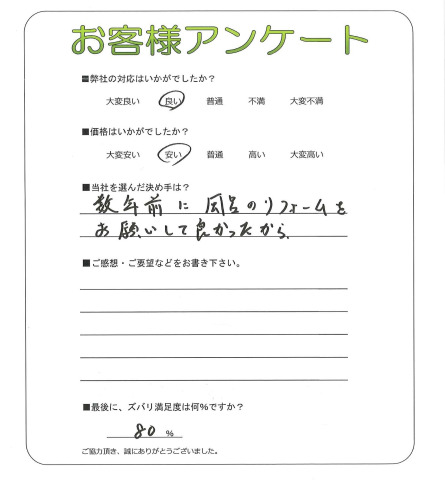 お客様アンケート
■弊社の対応はいかがでしたか？
大変良い 良い 普通 不満 大変不満
■価格はいかがでしたか？
大変安い 安い 普通 高い 大変高い
■当社を選んだ決め手は？
数年前に風呂のリフォームを
お願いして良かったから。
■ご感想・ご要望などをお書き下さい。
■最後に、ズバリ満足度は何%ですか？
80 %
ご協力頂き、誠にありがとうございました。